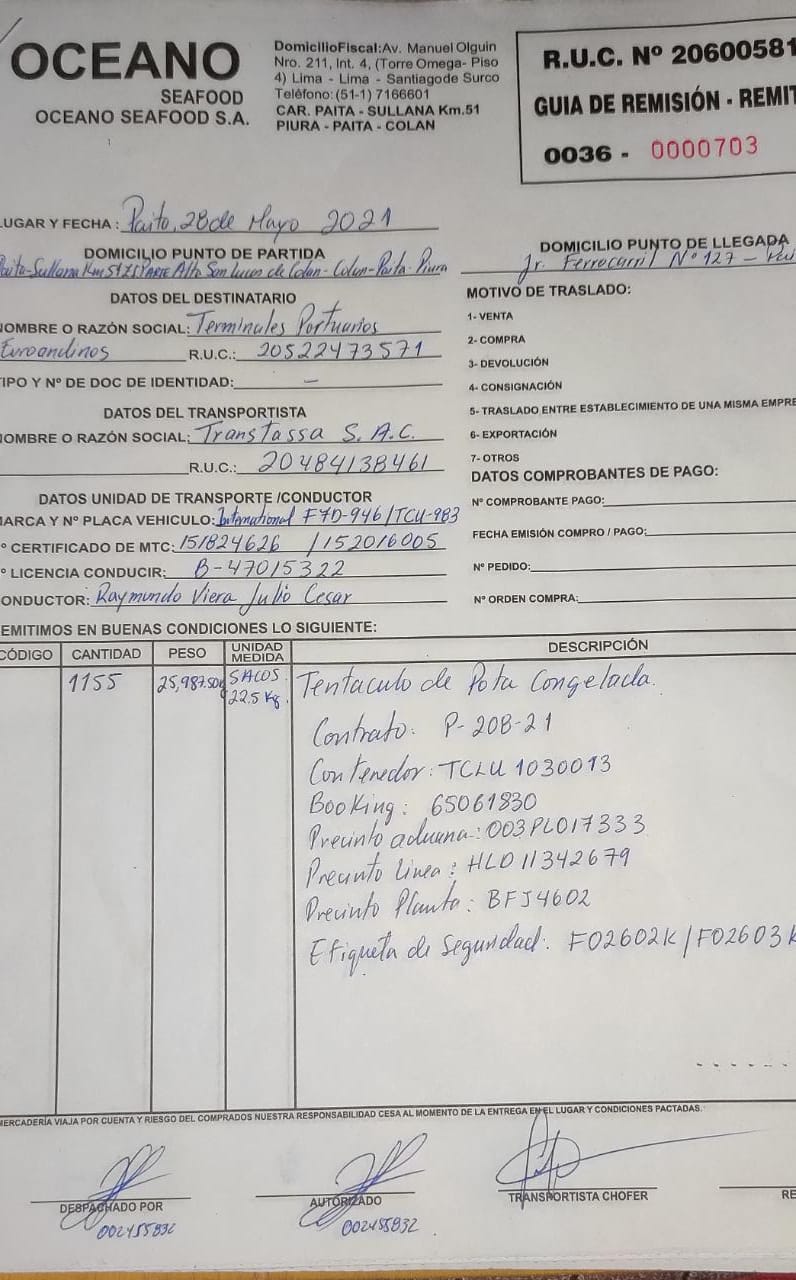 OCEANO
SEAFOOD
OCEANO SEAFOOD S.A.
DomicilioFiscal:Av. Manuel Olguin
Nro. 211, Int. 4, (Torre Omega- Piso
4) Lima - Lima - Santiagode Surco
Teléfono:(51-1) 7166601
CAR. PAITA - SULLANA Km.51
PIURA - PAITA - COLAN
R.U.C. Nº 20600581
GUIA DE REMISIÓN - REMIT
0036 - 0000703
LUGAR Y FECHA : Paita, 28 de Mayo 2021
DOMICILIO PUNTO DE PARTIDA
Paita-Sullana Km 51 Parte Alta San Lucas de Colan-Colan-Paita-Piura
DOMICILIO PUNTO DE LLEGADA
Jr. Ferrocarril Nº 127 - Pai
DATOS DEL DESTINATARIO
NOMBRE O RAZÓN SOCIAL: Terminales Portuarios
Euroandinos R.U.C.: 20522473571
TIPO Y Nº DE DOC DE IDENTIDAD: —
DATOS DEL TRANSPORTISTA
NOMBRE O RAZÓN SOCIAL: Transtassa S.A.C.
R.U.C.: 20484138461
DATOS UNIDAD DE TRANSPORTE /CONDUCTOR
MARCA Y Nº PLACA VEHICULO: International F7D-946/TCU-983
º CERTIFICADO DE MTC: 151824626 /152016005
º LICENCIA CONDUCIR: B-47015322
CONDUCTOR: Raymundo Viera Julio Cesar
MOTIVO DE TRASLADO:
1- VENTA
2- COMPRA
3- DEVOLUCIÓN
4- CONSIGNACIÓN
5- TRASLADO ENTRE ESTABLECIMIENTO DE UNA MISMA EMPRE
6- EXPORTACIÓN
7- OTROS
DATOS COMPROBANTES DE PAGO:
Nº COMPROBANTE PAGO:
FECHA EMISIÓN COMPRO / PAGO:
Nº PEDIDO:
Nº ORDEN COMPRA:
REMITIMOS EN BUENAS CONDICIONES LO SIGUIENTE:
CÓDIGO CANTIDAD PESO UNIDAD MEDIDA DESCRIPCIÓN
1155 25,987.50kg SACOS 22.5 Kg. Tentaculo de Pota Congelada.
Contrato. P-208-21
Contenedor: TCLU 1030013
Booking: 65061830
Precinto aduana: 003PL017333
Precinto Linea: HLD11342679
Precinto Planta: BFJ4602
Etiqueta de Seguridad. F02602K/F02603K
MERCADERÍA VIAJA POR CUENTA Y RIESGO DEL COMPRADOS NUESTRA RESPONSABILIDAD CESA AL MOMENTO DE LA ENTREGA EN EL LUGAR Y CONDICIONES PACTADAS.
DESPACHADO POR
002455832
AUTORIZADO
002455832
TRANSPORTISTA CHOFER
RE